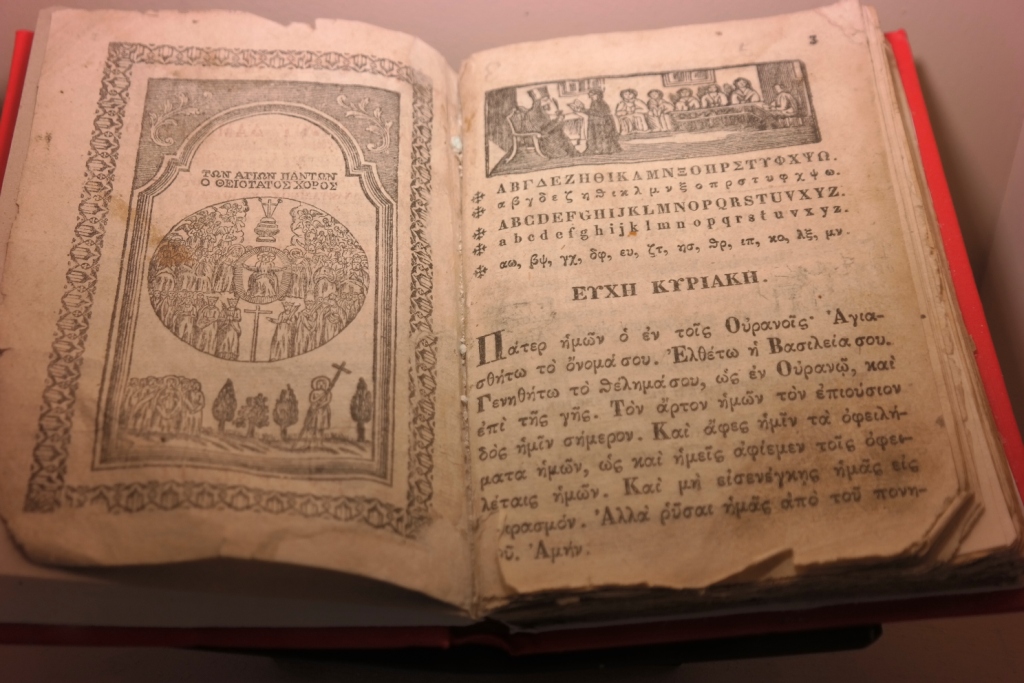 ΤΩΝ ΑΓΙΩΝ ΠΑΝΤΩΝ
Ο ΘΕΙΟΤΑΤΟΣ ΧΟΡΟΣ
3
ΑΒΓΔΕΖΗΘΙΚΛΜΝΞΟΠΡΣΤΥΦΧΨΩ.
αβγδεζηθικλμνξοπρστυφχψω.
ABCDEFGHIJKLMNOPQRSTUVXYZ.
abcdefghijklmnopqrstuvxyz.
αω, βψ, γχ, δφ, ευ, ζτ, ης, θρ, ιπ, κο, λξ, μν.
ΕΥΧΗ ΚΥΡΙΑΚΗ.
Πάτερ ἡμῶν ὁ ἐν τοῖς Οὐρανοῖς· Ἁγια-
σθήτω τὸ ὄνομά σου. Ἐλθέτω ἡ Βασιλεία σου.
Γενηθήτω τὸ θέλημά σου, ὡς ἐν Οὐρανῷ, καὶ
ἐπὶ τῆς γῆς. Τὸν ἄρτον ἡμῶν τὸν ἐπιούσιον
δὸς ἡμῖν σήμερον. Καὶ ἄφες ἡμῖν τὰ ὀφειλή-
ματα ἡμῶν, ὡς καὶ ἡμεῖς ἀφίεμεν τοῖς ὀφει-
λέταις ἡμῶν. Καὶ μὴ εἰσενέγκῃς ἡμᾶς εἰς
πειρασμόν. Ἀλλὰ ῥῦσαι ἡμᾶς ἀπὸ τοῦ πονη-
ροῦ. Ἀμήν.